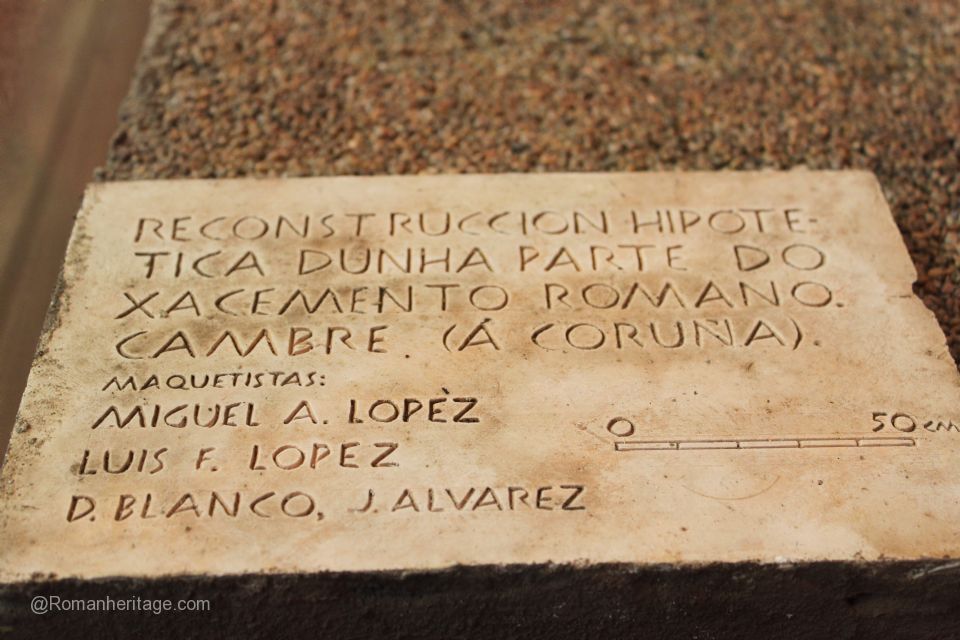 RECONSTRUCCION HIPOTE-
TICA DUNHA PARTE DO
XACEMENTO ROMANO.
CAMBRE. (Á CORUÑA).
MAQUETISTAS:
MIGUEL A. LOPÈZ
LUIS F. LOPEZ
D. BLANCO, J. ALVAREZ
0 50 CM
@Romanheritage.com